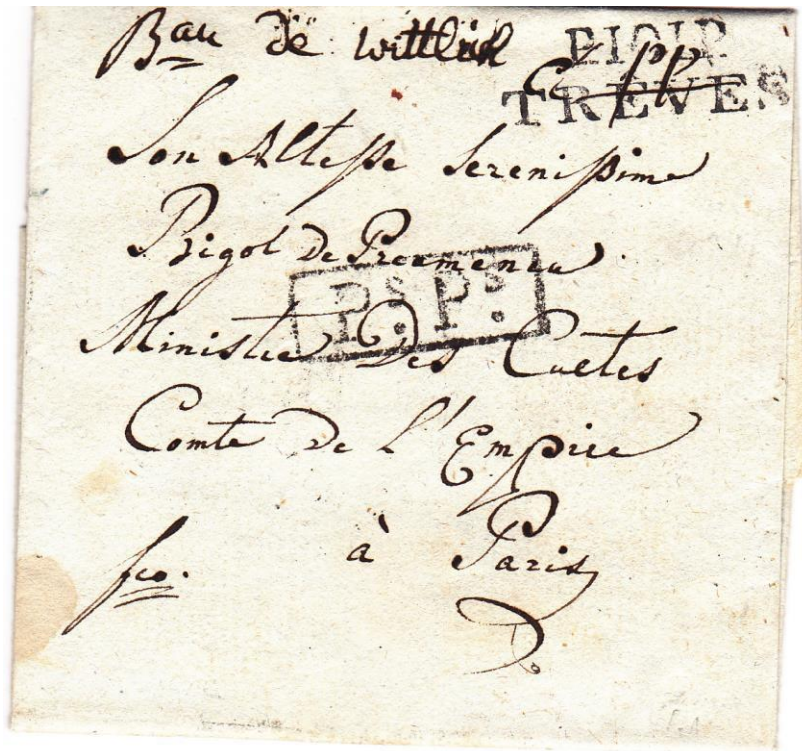 Bau de wittlich P101P
TREVES
Son Altesse Serenissime
Bigot de Preameneu
P.S P.S
Ministre Des Cultes
Comte de L'Empire
fco. à Paris